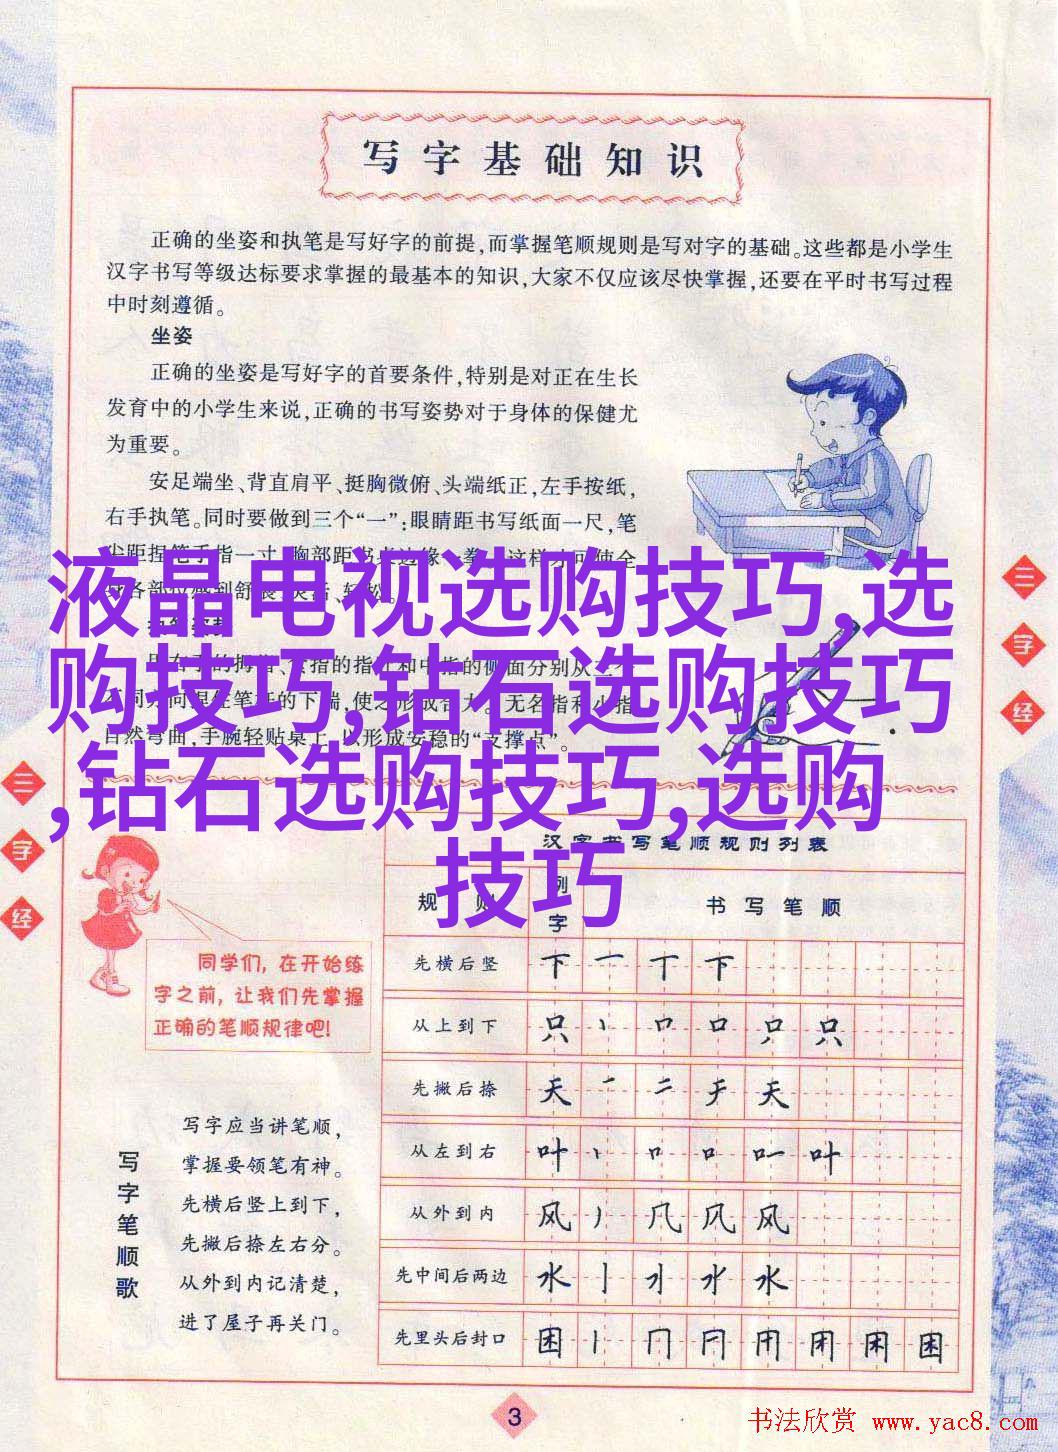 写字基础知识
正确的坐姿和执笔是写好字的前提,而掌握笔顺规则是写对字的基础。这些都是小学生
汉字书写等级达标要求掌握的最基本的知识,大家不仅应该尽快掌握,还要在平时书写过程
中时刻遵循。
坐姿
正确的坐姿是写好字的首要条件,特别是对正在生长
发育中的小学生来说,正确的书写姿势对于身体的保健尤
为重要。
安足端坐、背直肩平、挺胸微俯、头端纸正,左手按纸,
右手执笔。同时要做到三个“一”:眼睛距书写纸面一尺,笔
液晶电视选购技巧,选
购技巧,钻石选购技巧
,钻石选购技巧,选购
技巧
自然弯曲,手腕轻贴桌上,以形成安稳的“支撑点”。
三字经
三字经
同学们,在开始练
字之前,让我们先掌握
正确的笔顺规律吧!
写字笔顺歌
写字应当讲笔顺,
掌握要领笔有神。
先横后竖上到下,
先撇后捺左右分。
从外到内记清楚,
进了屋子再关门。
汉字书写笔顺规则列表
规则 例字 书写笔顺
先横后竖 下 一 丅 下
从上到下 只 丶 口 口 只
先撇后捺 天 一 二 天
从左到右 叶 丶 口 口 叶
从外到内 风 丿 几 风 风
先中间后两边 水 亅 水
先里头后封口 困 丨 冂 困
3
书法欣赏 www.yac8.com